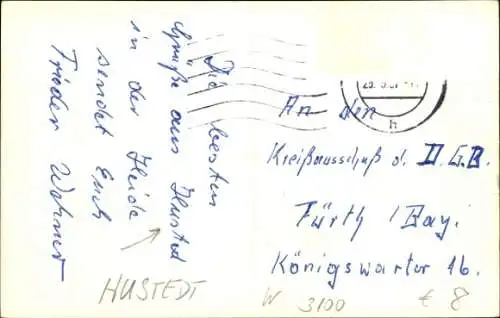 Die besten
Grüße aus Husted
in der Heide
sendet Euch
Frieder Wehner
HUSTEDT
An den
Kreißausschuß d. D.G.B.
Fürth / Bay.
Königswarter 16.
h
W 3100
€ 8